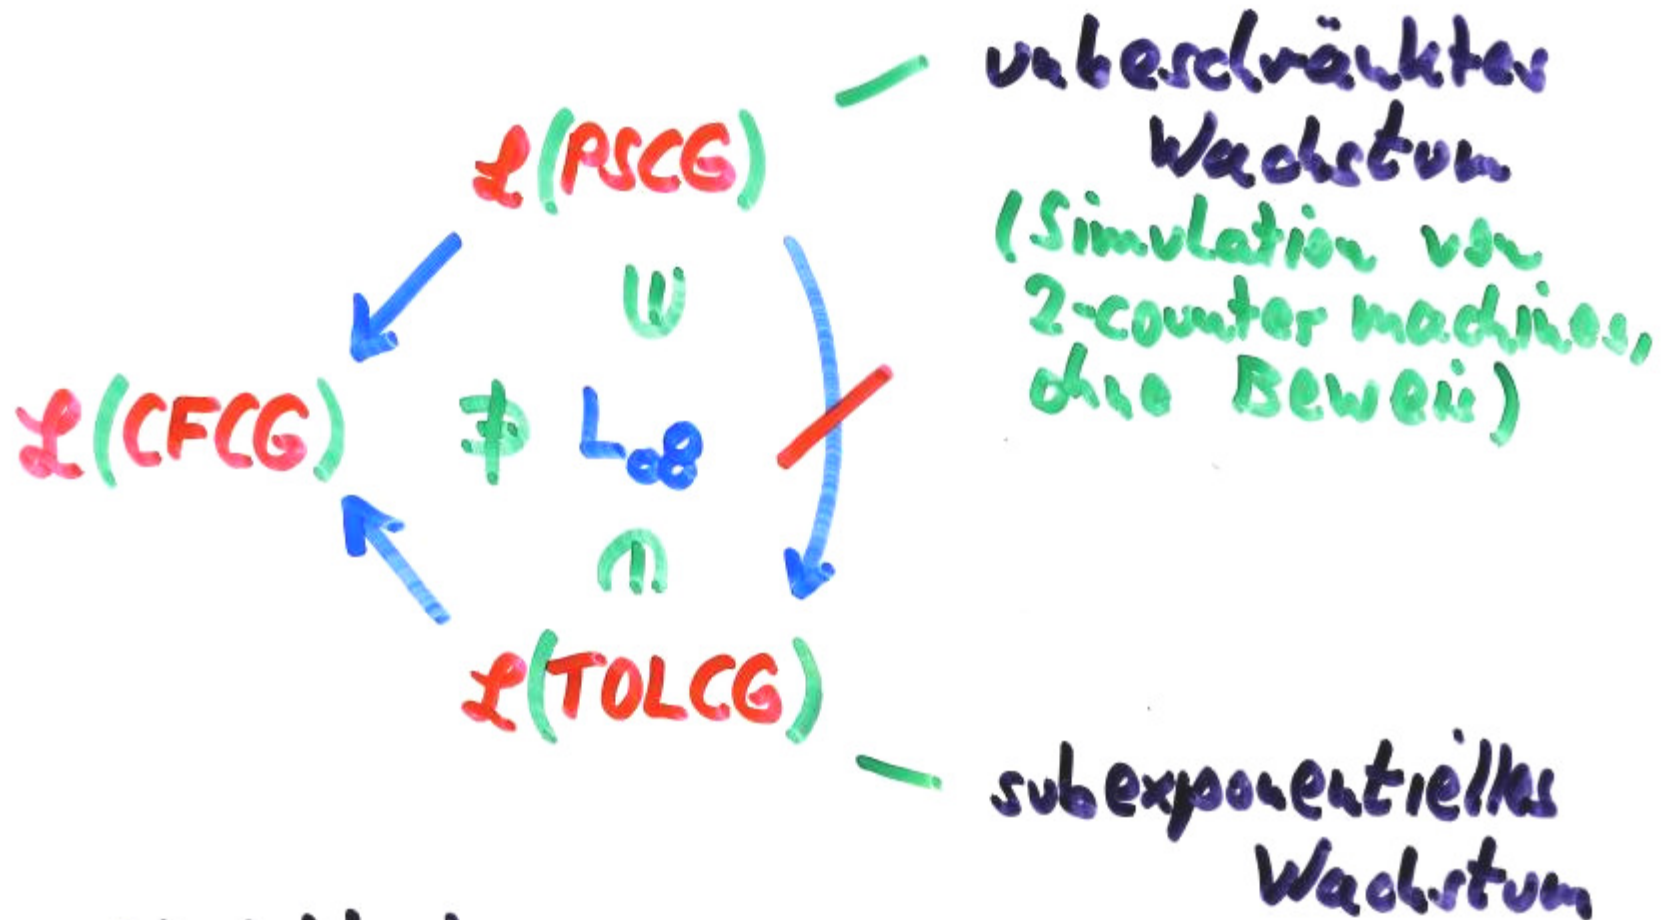 unbeschränktes
Wachstum
(Simulation von
2-counter machines,
ohne Beweis)
ℒ(PSCG)
∪|
ℒ(CFCG) ∌ L
∩|
ℒ(TOLCG)
subexponentielles
Wachstum